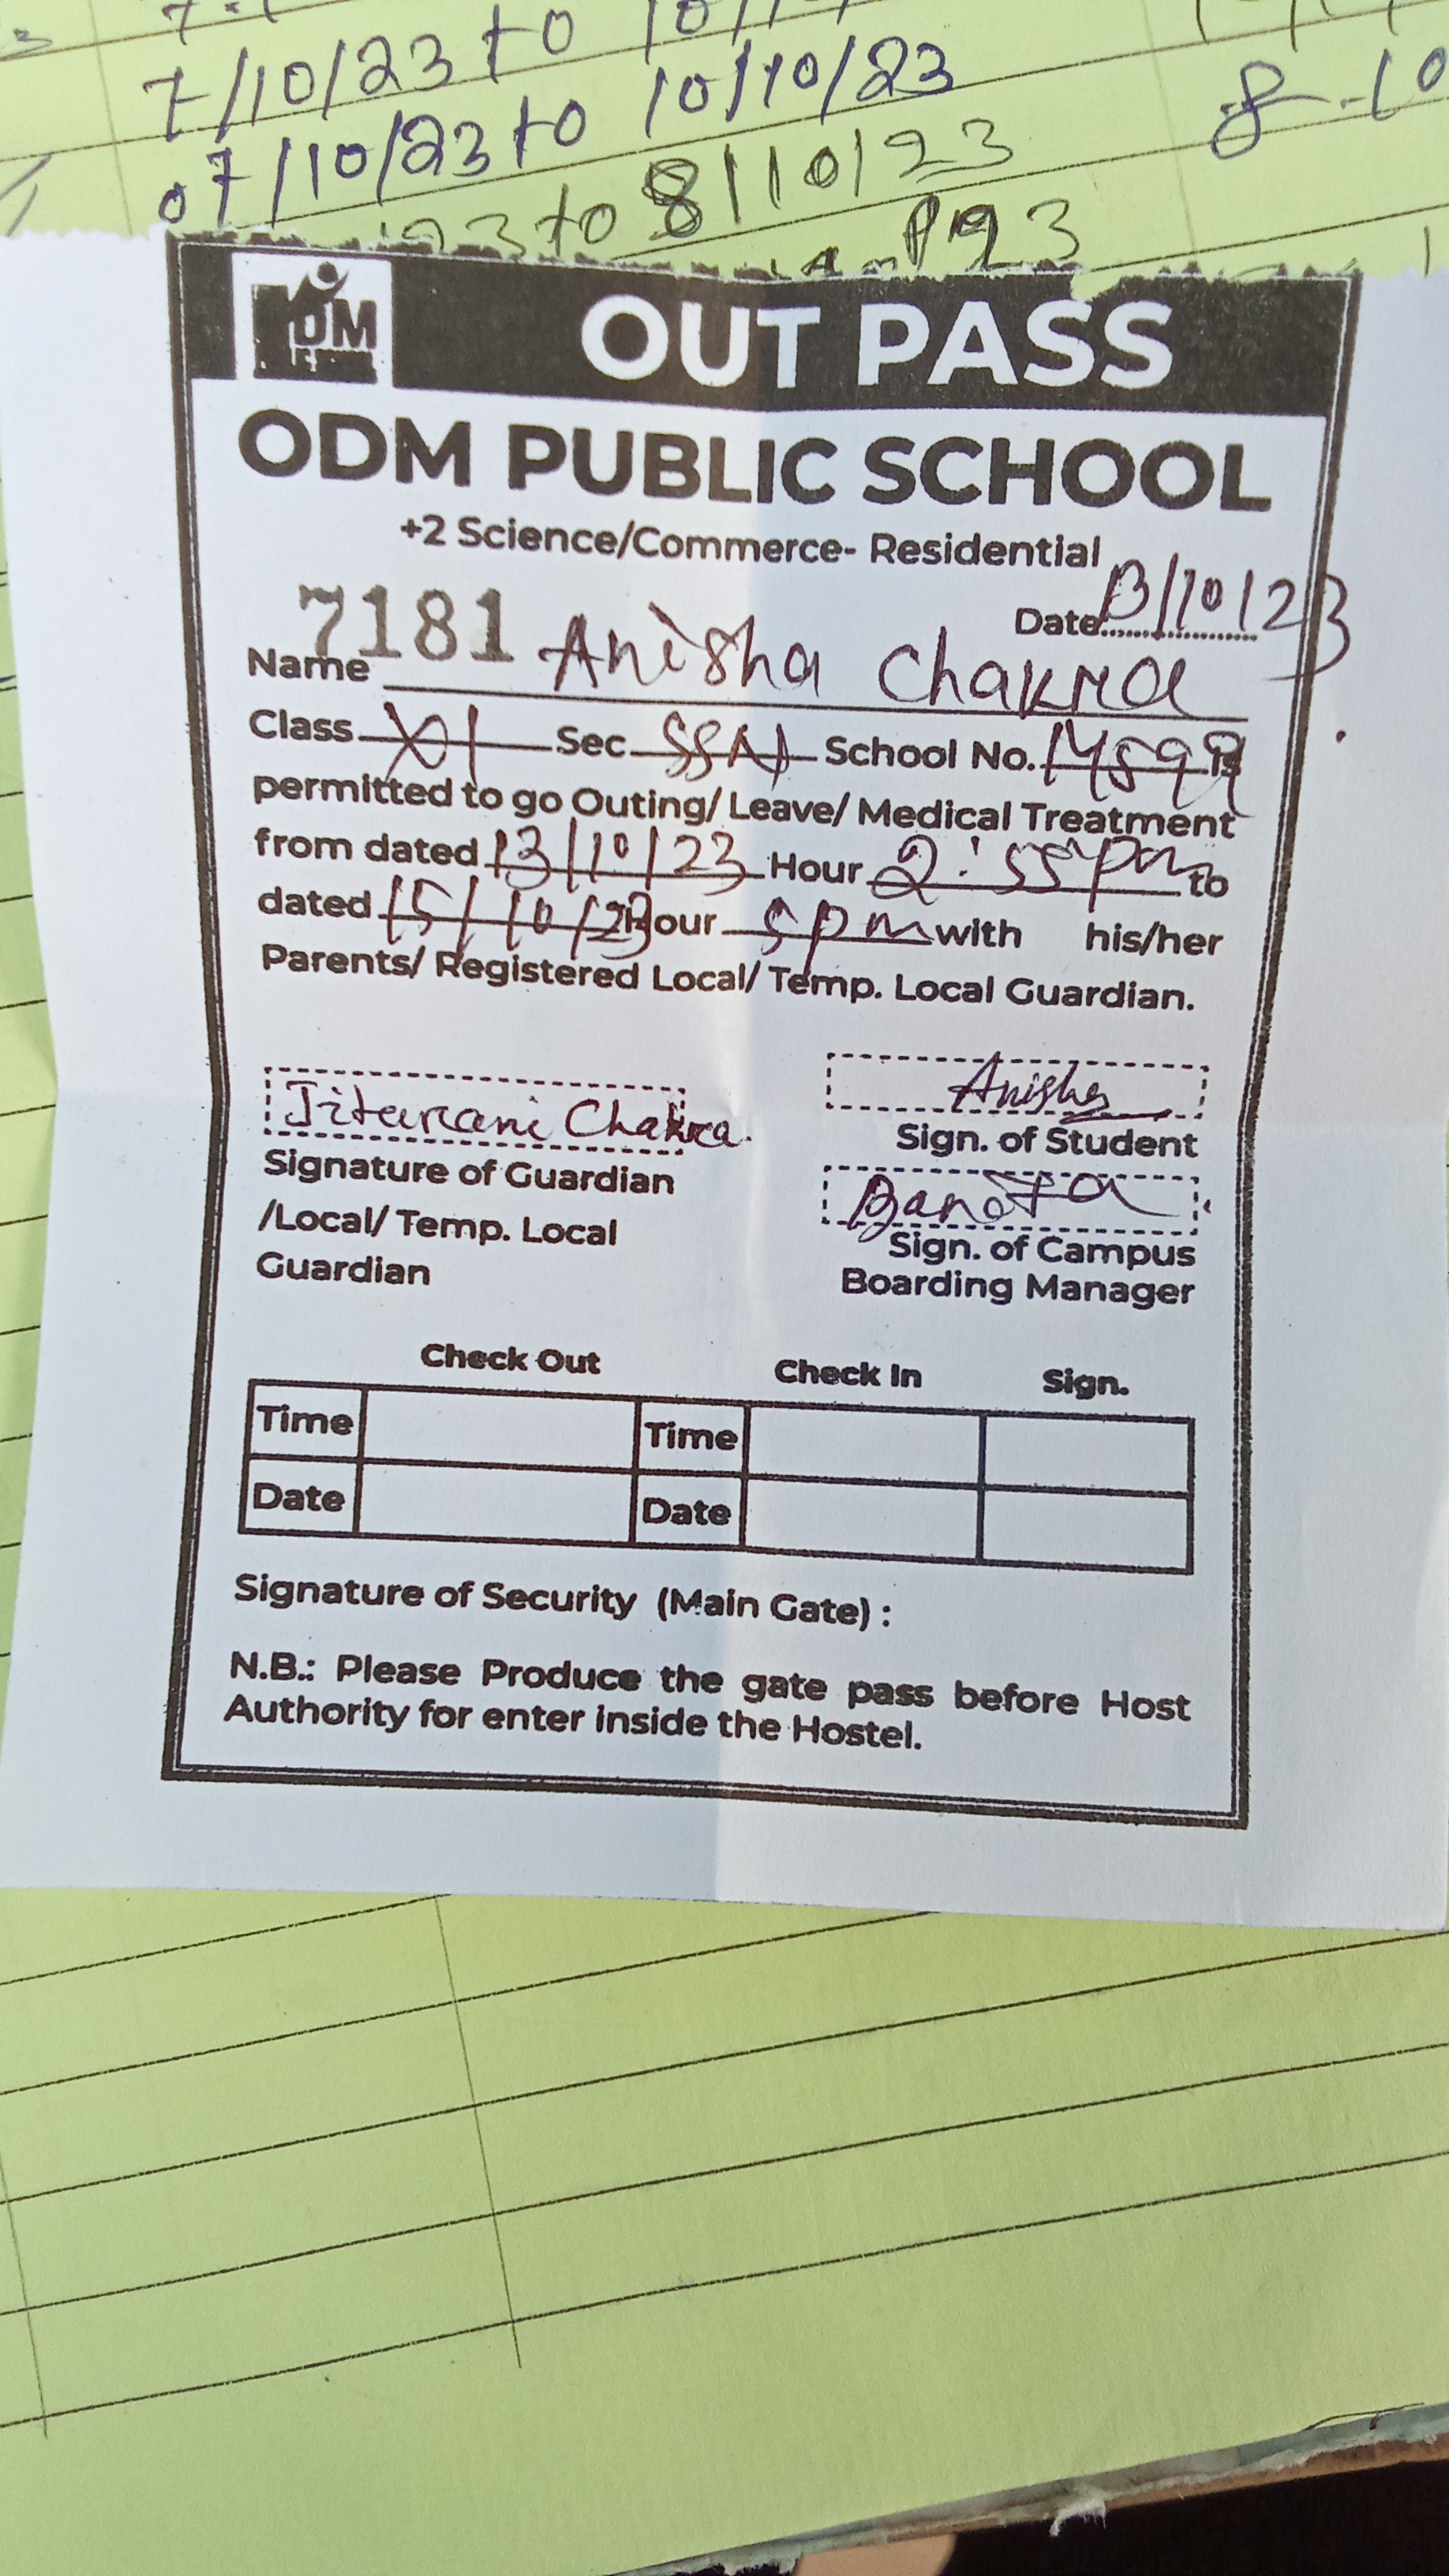 7/10/23 to 10/1
07/10/23 to 10/10/23
8-10
23 to 8/10/23
23
ODM
OUT PASS
ODM PUBLIC SCHOOL
+2 Science/Commerce- Residential
7181 Date 13/10/23
Name Anisha Chakra
Class XI Sec SSN School No. 14599 is
permitted to go Outing/ Leave/ Medical Treatment
from dated 13/10/23 Hour 2:55pm to
dated 15/10/23 Hour 5pm with his/her
Parents/ Registered Local/ Temp. Local Guardian.
Jitarani Chakra.
Signature of Guardian
/Local/ Temp. Local
Guardian
Anisha
Sign. of Student
Sign. of Campus
Boarding Manager
Check Out Check In Sign.
Time Time
Date Date
Signature of Security (Main Gate) :
N.B.: Please Produce the gate pass before Host
Authority for enter inside the Hostel.